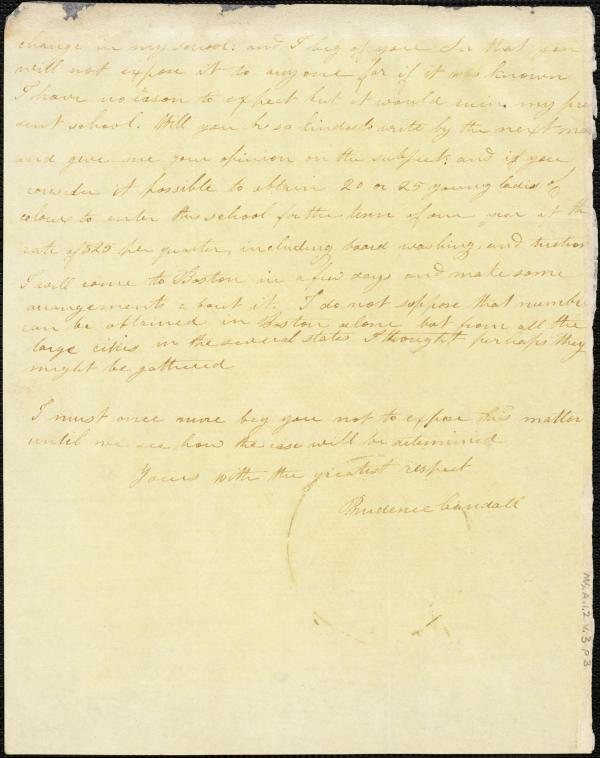 change in my school: and I beg of you Sir that you
will not expose it to any one for if it was known
I have no reason to expect but it would ruin my pre
sent school. Will you be so kind as to write by the next mai
and give me your opinion on the subject: and if you
consider it possible to obtain 20 or 25 young ladies of
colour to enter this school for the term of one year at the
rate of $25 per quarter, including board washing and tuition
I will come to Boston in a few days and make some
arrangements about it. I do not suppose that number
can be obtained in Boston alone but from all the
large cities in the several states I thought perhaps they
might be gathered
I must once more beg you not to expose this matter
until we see how the case will be determined
Yours with the greatest respect
Prudence Crandall
Ms. A.1.2 v. 3 p 3